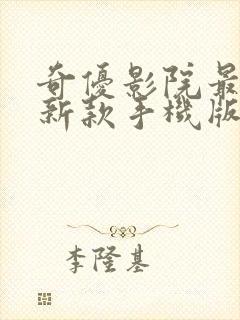 奇優影院最
新款手機版
李隆基